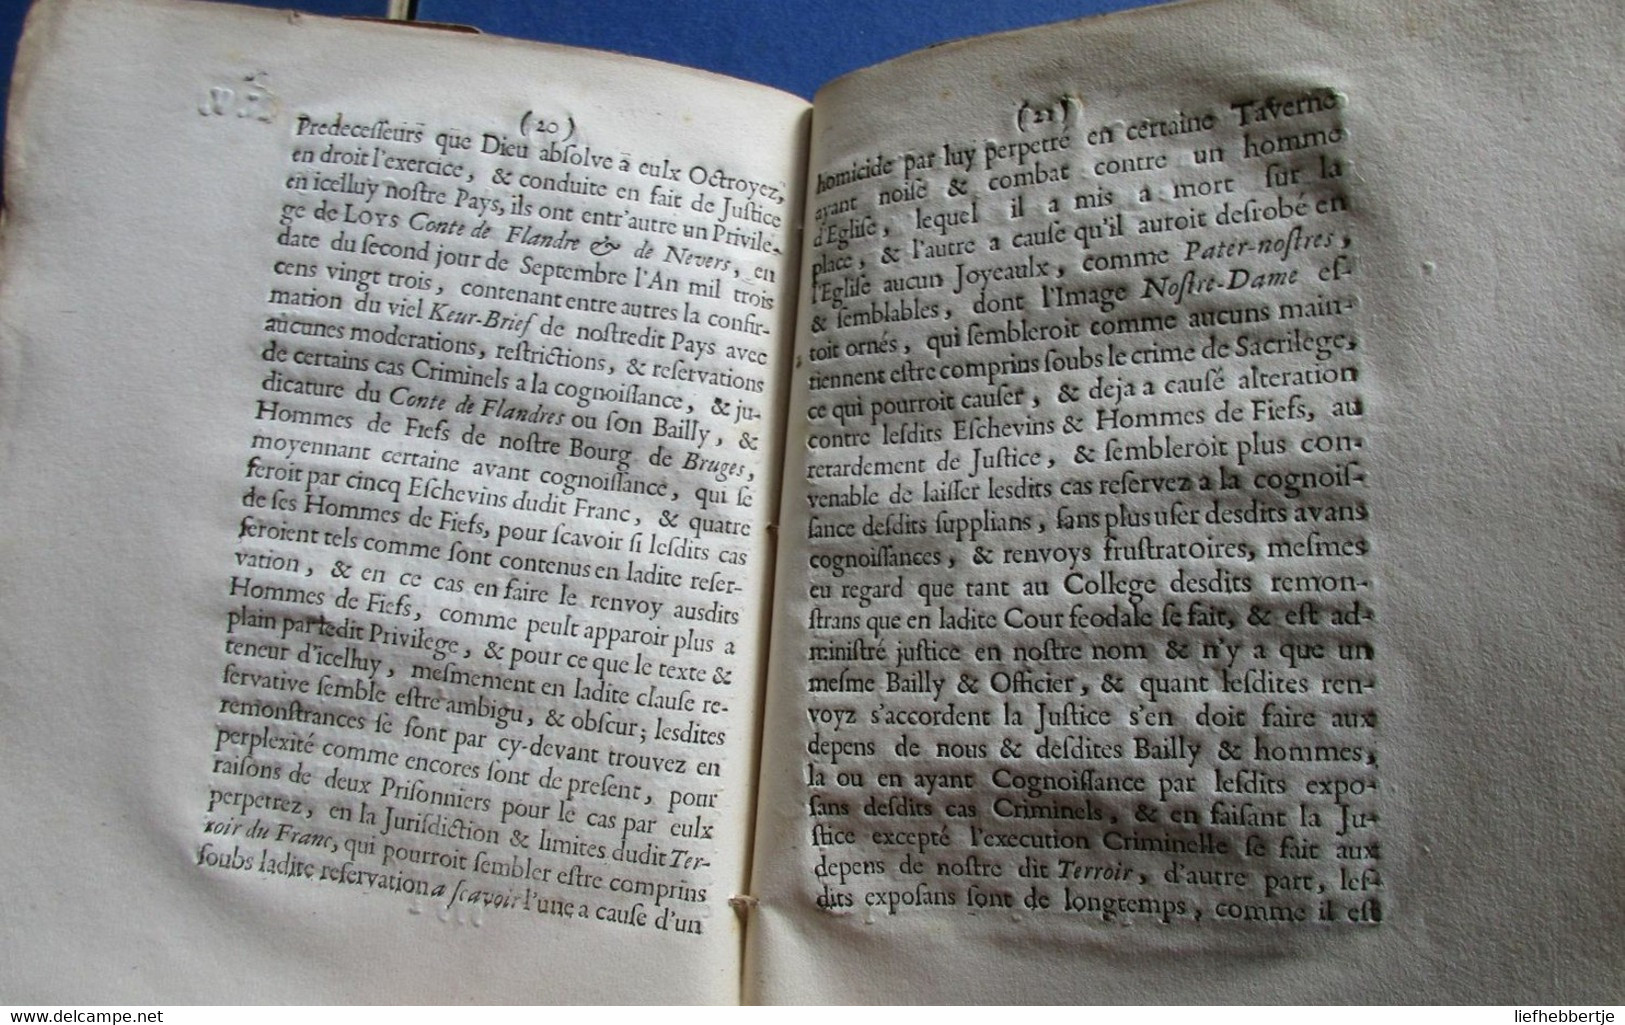 (20)
Predecesseurs que Dieu absolve a eulx Octroyez,
en droit l'exercice, & conduite en fait de Justice
en icelluy nostre Pays, ils ont entr'autre un Privile-
ge de LOYS Conte de Flandre & de Nevers, en
date du second jour de Septembre l'An mil trois
cens vingt trois, contenant entre autres la confir-
mation du viel Keur-Brief de nostredit Pays avec
aucunes moderations, restrictions, & reservations
de certains cas Criminels a la cognoissance, & ju-
dicature du Conte de Flandres ou son Bailly, &
Hommes de Fiefs de nostre Bourg de Bruges,
moyennant certaine avant cognoissance, qui se
feroit par cincq Eschevins dudit Franc, & quatre
de ses Hommes de Fiefs, pour scavoir si lesdits cas
seroient tels comme sont contenus en ladite reser-
vation, & en ce cas en faire le renvoy ausdits
Hommes de Fiefs, comme peult apparoir plus a
plain par ledit Privilege, & pour ce que le texte &
teneur d'icelluy, mesmement en ladite clause re-
servative semble estre ambigu, & obscur; lesdites
remonstrances se sont par cy-devant trouvez en
perplexité comme encores sont de present, pour
raisons de deux Prisonniers pour le cas par eulx
perpetrez, en la Jurisdiction & limites dudit Ter-
roir du Franc, qui pourroit sembler estre comprins
soubs ladite reservation a scavoir l'une a cause d'un
(21)
homicide par luy perpetré en certaine Taverne
ayant noise & combat contre un homme
d'Eglise, lequel il a mis a mort sur la
place, & l'autre a cause qu'il auroit desrobé en
l'Eglise aucun Joyeaulx, comme Pater-nostres,
& semblables, dont l'Image Nostre-Dame es-
toit ornés, qui sembleroit comme aucuns main-
tiennent estre comprins soubs le crime de Sacrilege,
ce qui pourroit causer, & deja a causé alteration
contre lesdits Eschevins & Hommes de Fiefs, au
retardement de Justice, & sembleroit plus con-
venable de laisser lesdits cas reservez a la cognois-
sance desdits supplians, sans plus user desdits avans
cognoissances, & renvoys frustratoires, mesmes
eu regard que tant au College desdits remon-
strans que en ladite Cour feodale se fait, & est ad-
ministré justice en nostre nom & n'y a que un
mesme Bailly & Officier, & quant lesdites ren-
voyz s'accordent la Justice s'en doit faire aux
depens de nous & desdites Bailly & hommes,
la ou en ayant Cognoissance par lesdits expo-
sans desdits cas Criminels, & en faisant la Ju-
stice excepté l'execution Criminelle se fait aux
depens de nostre dit Terroir, d'autre part, les-
dits exposans sont de longtemps, comme il est
www.delcampe.net
liefhebbertje